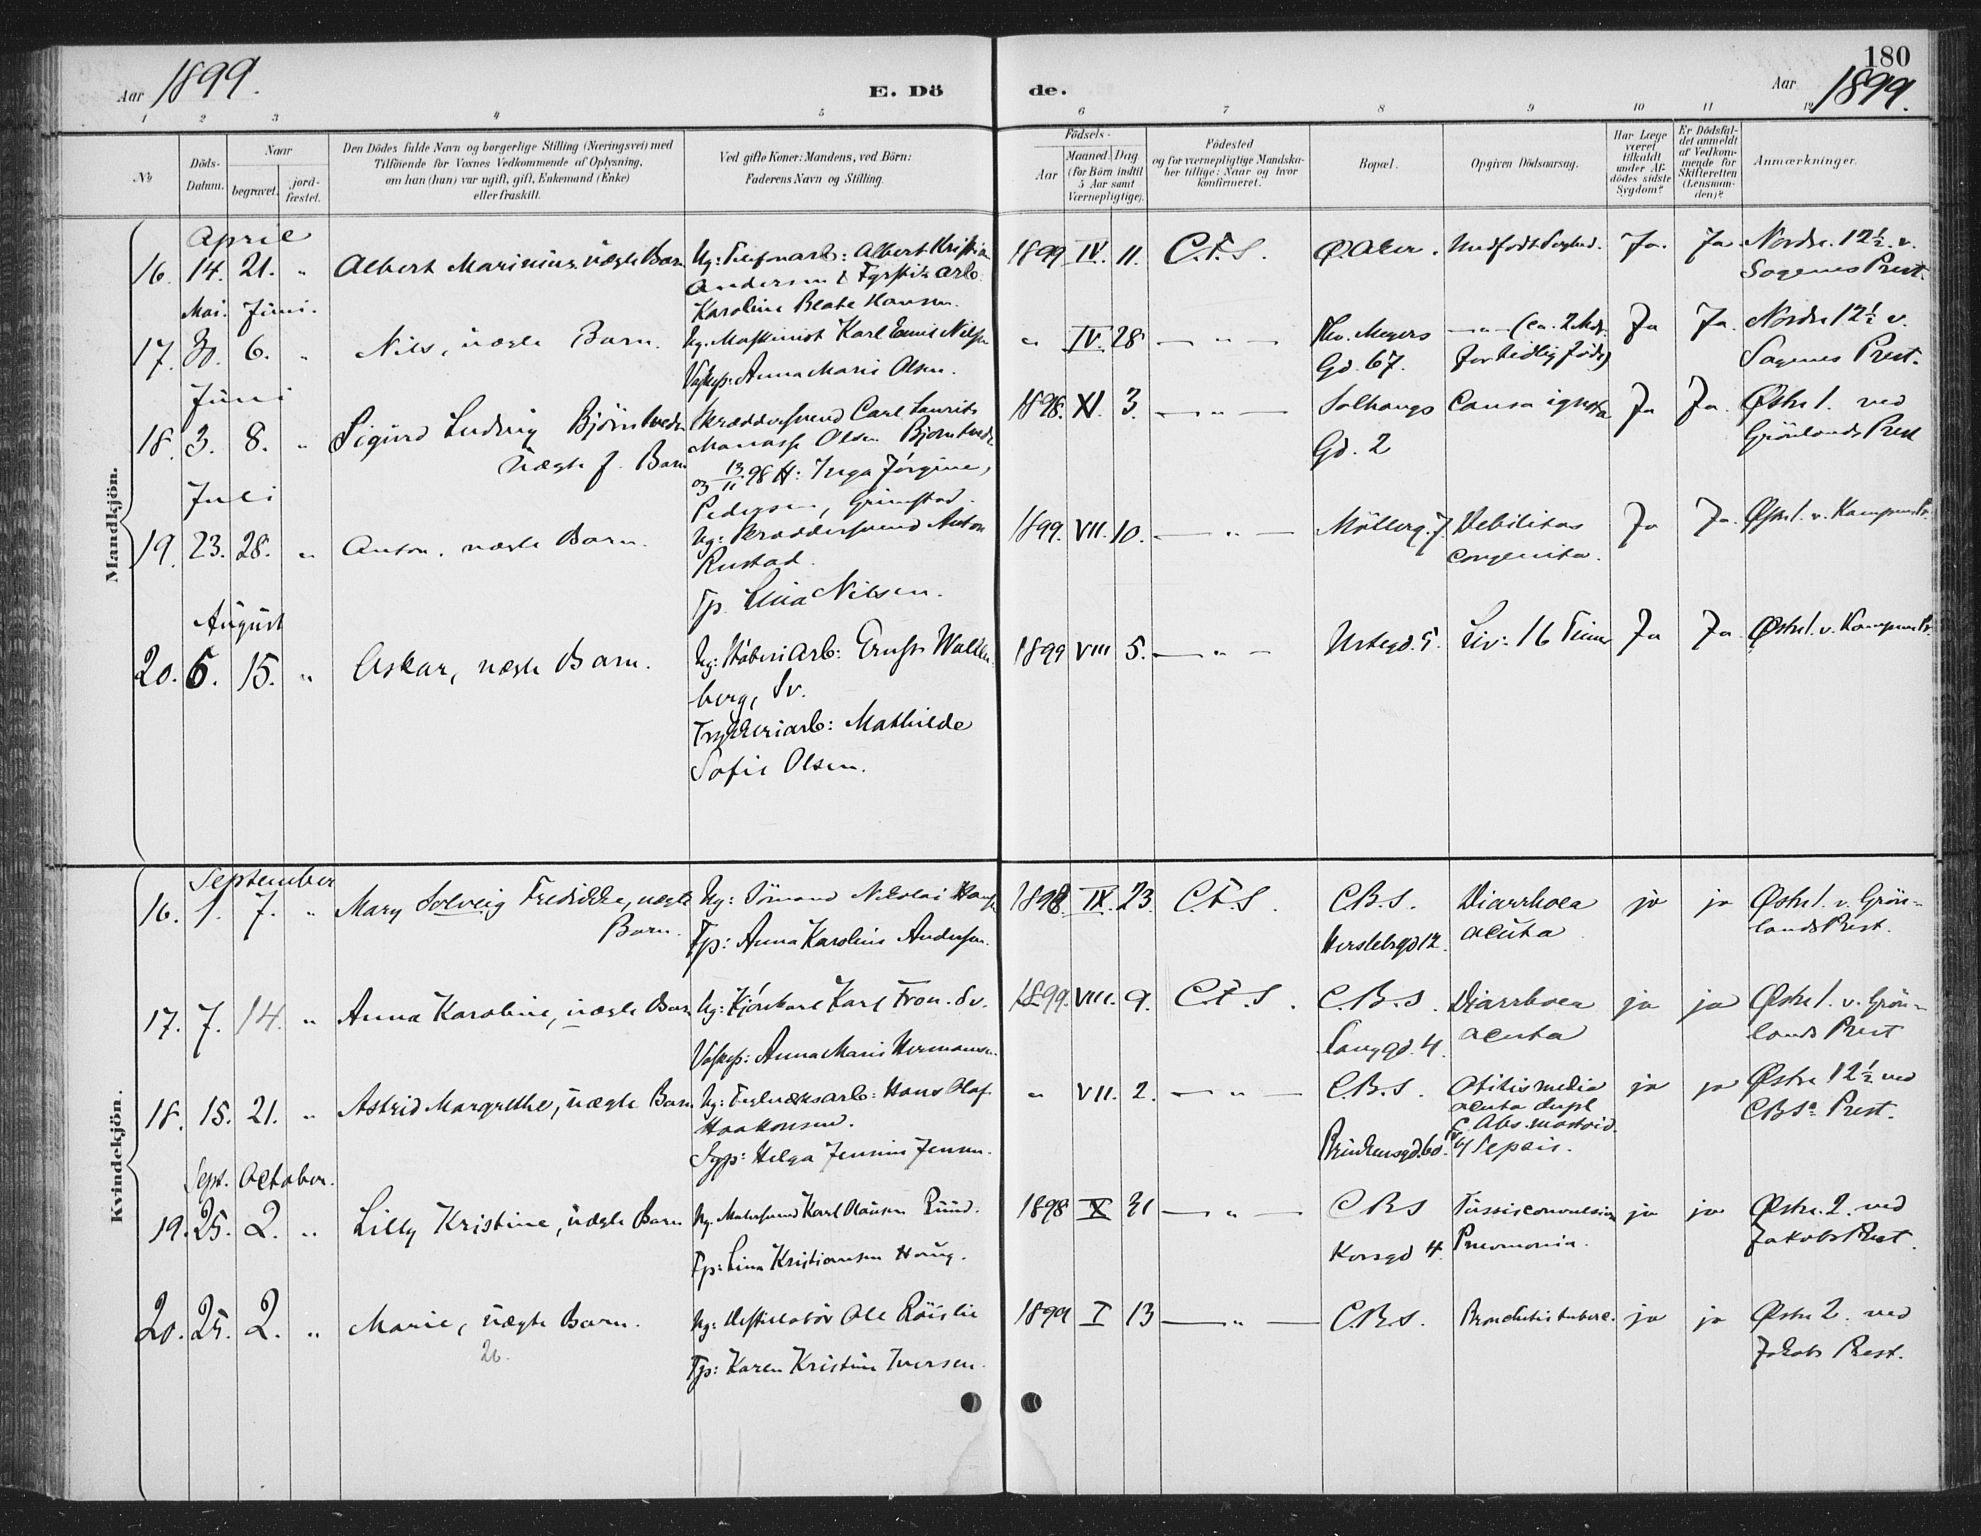 180
Aar 1899.
E. Döde.
Aar 1899.
1 2 3 4 5 6 7 8 9 10 11 12
No
Döds-Datum.
Naar
begravet.
jord-fæstet.
Den Dödes fulde Navn og borgerlige Stilling (Næringsvei) med
Tilföiende for Voxnes Vedkommende af Oplysning,
om han (hun) var ugift, gift, Enkemand (Enke)
eller fraskilt.
Ved gifte Koner: Mandens, ved Börn:
Faderens Navn og Stilling.
Födsels-
Aar
Maaned. Dag.
(for Börn indtil
5 Aar samt
Værnepligtige).
Födested
og for værnepligtige Mandska-
ber tillige: Naar og hvor
konfirmeret.
Bopæl.
Opgiven Dödsaarsag.
Har Læge
været
tilkaldt
under Af-
dödes sidste
Sygdom?
Er Dödsfal-
det anmeldt
af Vedkom-
mende for
Skifteretten
(Lensman-
den)?
Anmærkninger.
Mandkjön.
April
16. 14. 21. " Albert Marinius uægte Barn Ug: Telefonarb: Albert Kristian 1899 IV. 11. C.F.S. Ø. Aker. Medfødt Svaghed. Ja. Ja Nordre 12½ v.
Andersen & Fyrstikarb. Sagenes Prest.
Karoline Beate Hansen.
Mai. Juni.
17. 30. 6. " Nils, uægte Barn. Ug. Maskinist Karl Emil Nilsen " IV. 28 — " — Thv. Meyers — " — (ca. 2 Mdr. Ja Ja. Nordre 12½ v.
Gd. 67. for tidlig født) Sagenes Prest.
Anna Marie Olsen.
Juni
18. 3. 8. " Sigurd Ludvig Bjørntvedt Skræddersvend Carl Laurits 1898. XI. 3. — " — Solhaugs Causa ignota Ja Ja. Østre 1. ved
uægte f. Barn Manasse Olsen Bjørntvedt Gd. 2 Grönlands Prest
og 13/11 98 H: Inga Jörgine,
Pedersen, Grimstad.
Juli
19. 23. 28. " Anton, uægte Barn. Ug: Skræddersvend Anton 1899. VII. 10. — " — Møllerg. 7. Debilitas Ja Ja. Østre 1. v. Kampens Pr.
Rustad. congenita.
Tp. Lina Nilsen.
August
20. 6. 15. " Oskar, uægte Barn. Ug: Støberiarb: Ernst Walden- 1899 VIII 5. — " — Urtegd. 5. Liv: 16 Timer Ja Ja. Østre 1. v. Kampens Pr.
berg, Sv.
Trykkeriarb: Mathilde
Sofie Olsen.
Kvindekjön.
September
16. 1. 7. " Mary Solveig Fredrikke, uægte Ug: Sömand Nikolai Hansen 1898. IX. 23. C.F.S. C.B.S. Diarrhoea ja ja Østre 1. v. Grön-
Barn. Tp: Anna Karoline Andersen. Herslebsgd 12. acuta lands Prest.
17. 7. 14. " Anna Karoline, uægte Barn Ug: Kjörekarl Karl Fron. Sv. 1899. VIII. 9. C.F.S. C.B.S. Diarrhoea ja ja Østre 1. v. Grön-
Anna Marie Hermansen. Langgd. 4. acuta lands Prest
18. 15. 21. " Astrid Margrethe, uægte Barn Ug: Teglværksarb: Hans Olaf " VII. 2. — " — C.B.S. Otitis media ja ja Østre 12½ ved
Haakonsen. acuta dupl CBSs Prest.
c. Abs. mastoid.
Syp: Helga Jensine Jensen. Brinkensgd. 60. Sepsis.
Sept. October.
19. 25. 2. " Lilly Kristine, uægte Barn Ug. Malersvend Karl Hansen Ruud. 1898 X 31 — " — C B S Tussis convulsiva ja ja Østre. 2. ved
Tp: Lina Kristiansen Haug. Korsgd 4. Pneumonia. Jakobs Prest.
20. 25. 2. " Marie, uægte Barn. Ug: Destilatör Ole Röislie 1899 I 13 — " — C.B.S. Bronchitis tuberc. ja ja Østre 2. ved
26. Tp: Karen Kristine Iversen. Jakobs Prest.